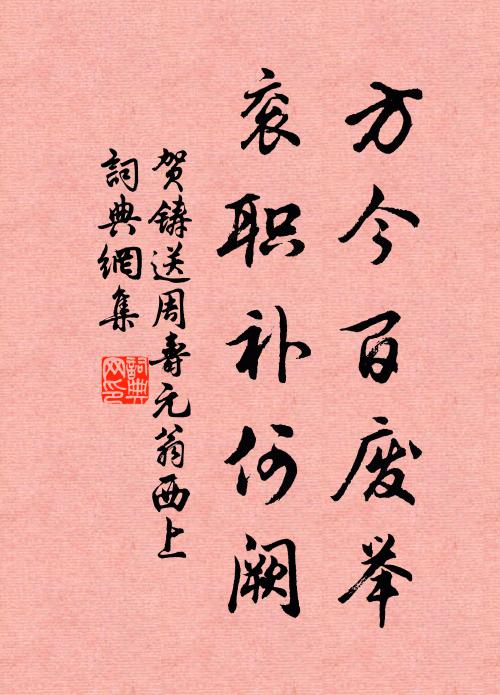 方今百废举
衮职补何阙
贺铸送周寿元翁西上
詞典網集
詞典
网印